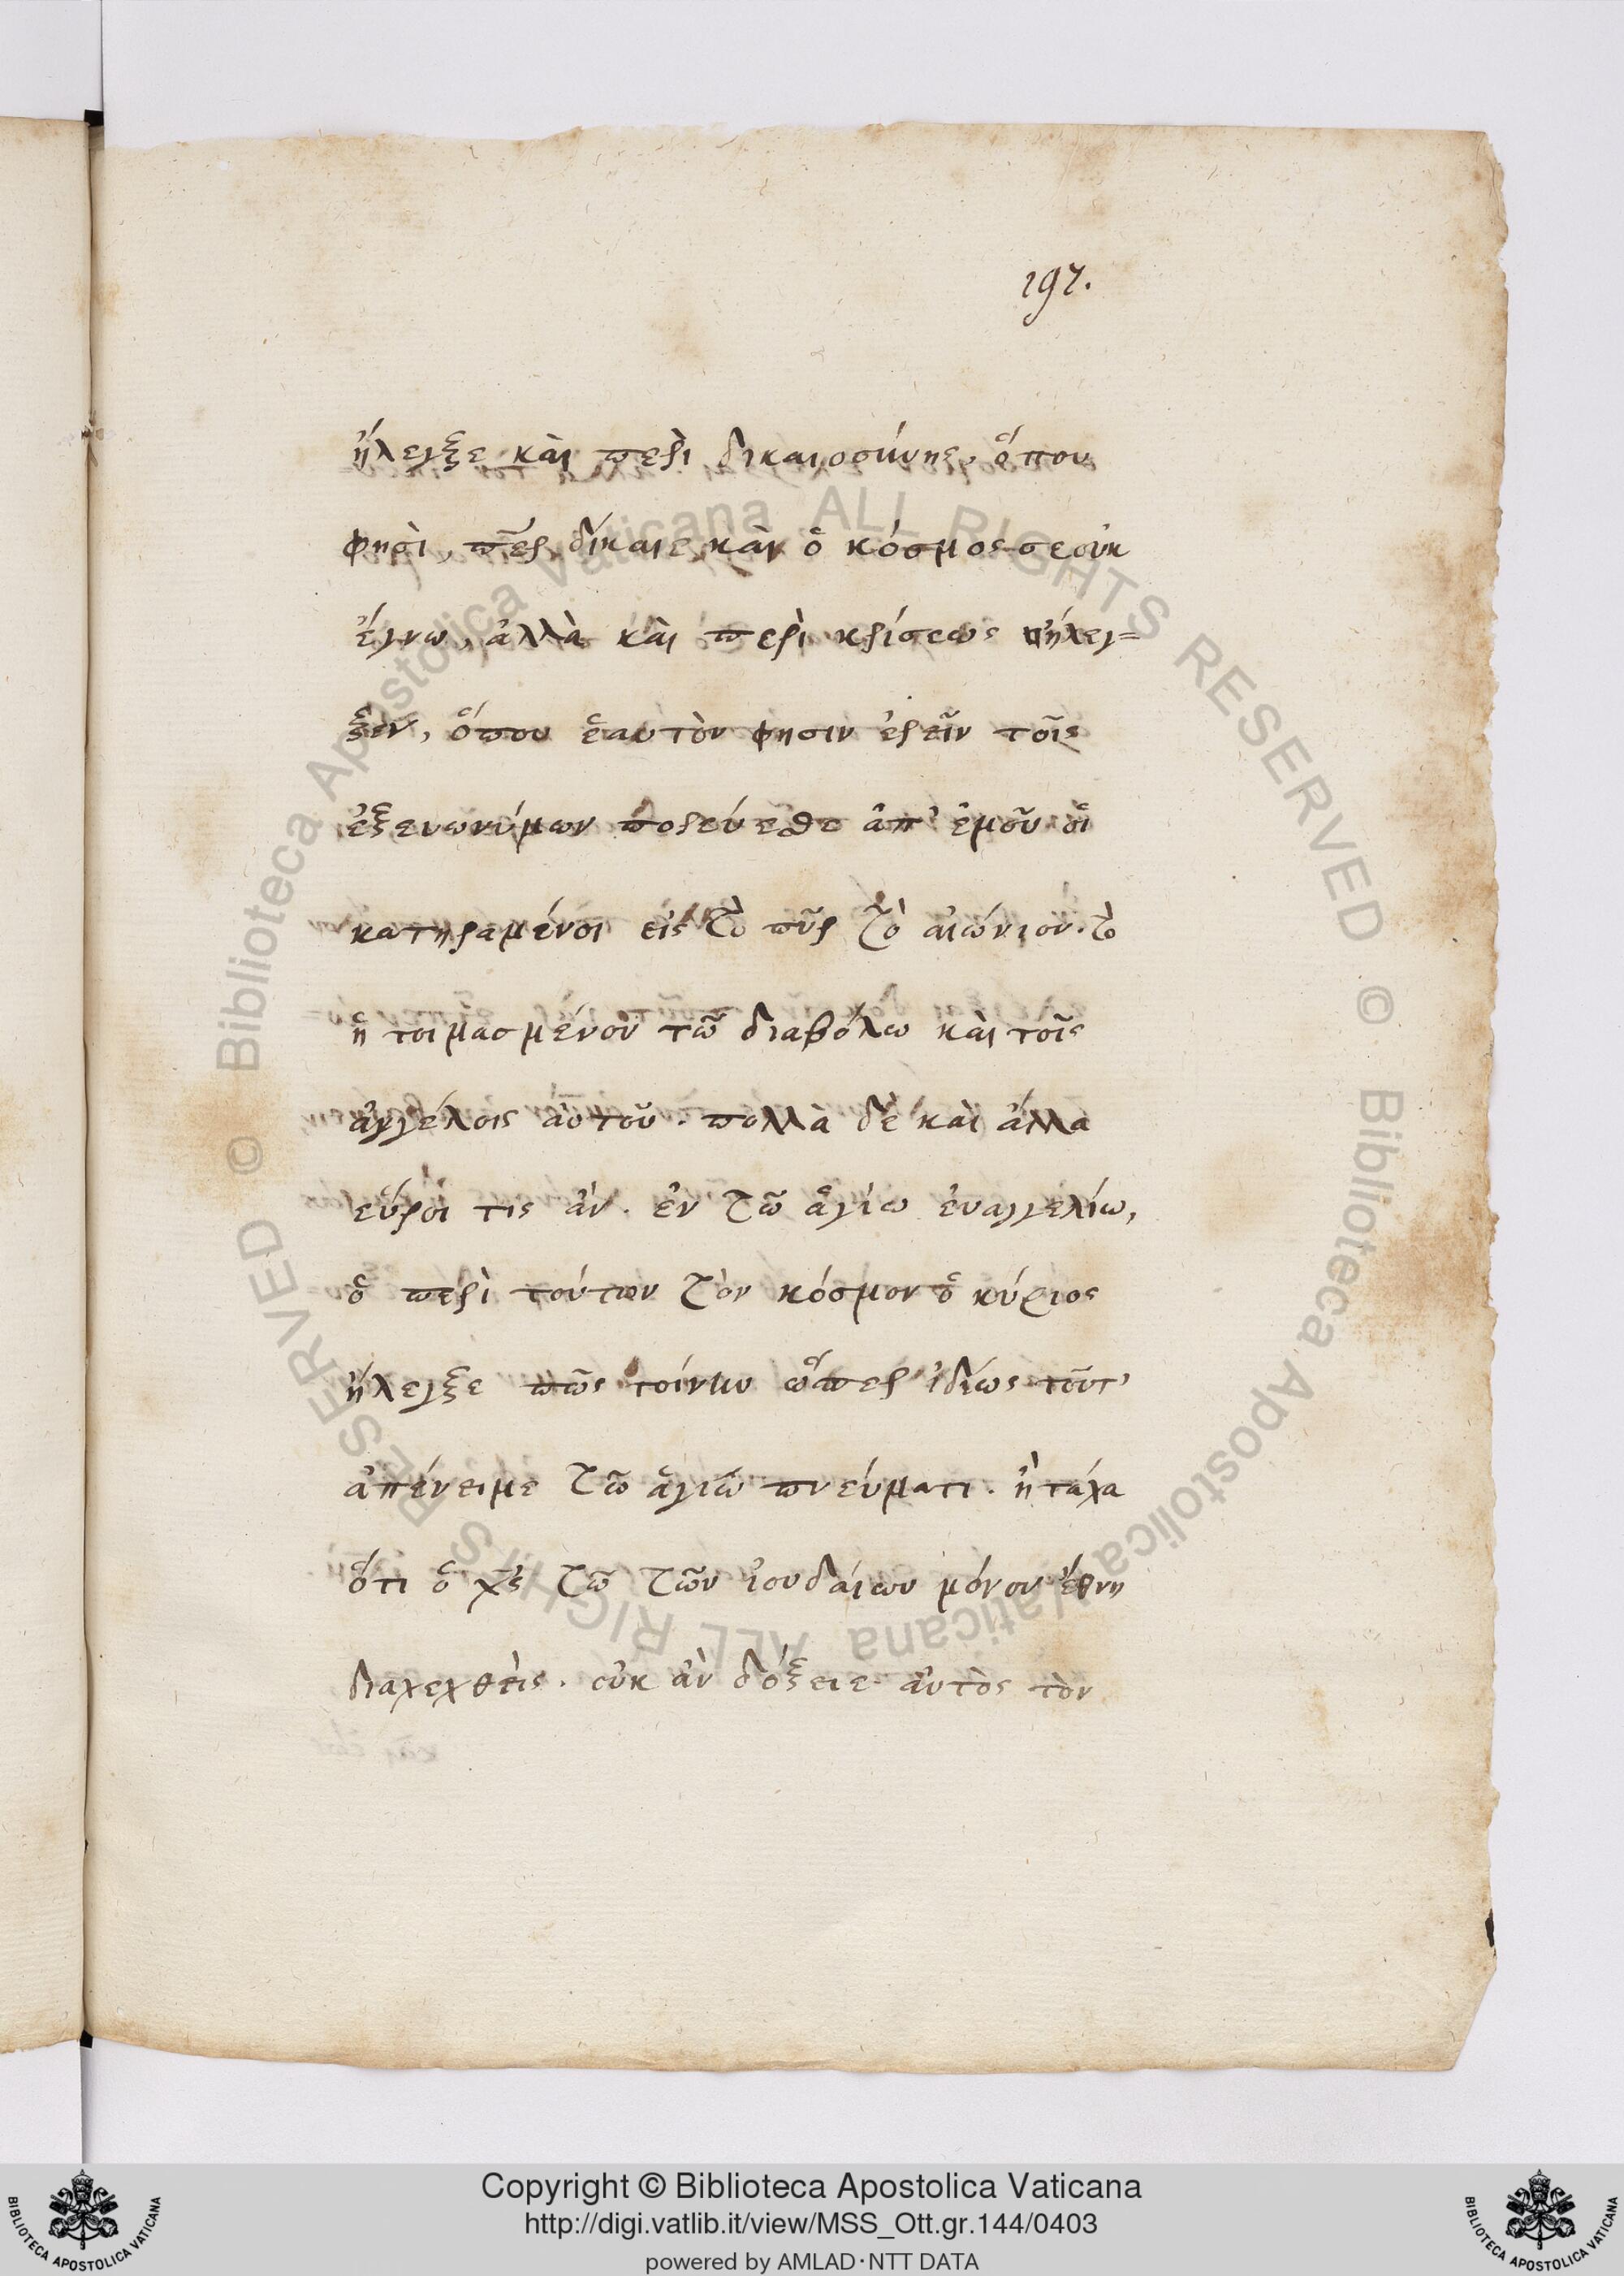 197.
ἤλεγξε καὶ περὶ δικαιοσύνης, ὅπου
φησὶ, περ δίκαιε καὶ ὁ κόσμος σε οὐκ
ἔγνω, ἀλλὰ καὶ περὶ κρίσεως ἤλεγ=
ξεν, ὅπου ἑαυτὸν φησιν ἐρεῖν τοῖς
ἐξ ευωνύμων πορεύεσθε ἀπ' ἐμοῦ οἱ
κατηραμένοι εἰς τὸ πῦρ τὸ αἰώνιον. τὸ
ἡτοιμασμένον τῶ διαβόλω καὶ τοῖς
ἀγγέλοις αὐτοῦ. πολλὰ δὲ καὶ ἄλλα
εὕροι τις ἂν. ἐν τῶ ἁγίω ἐυαγγελίω,
ὁ περὶ τούτων τὸν κόσμον ὁ κύριος
ἤλεγξε πῶς τοίνυν ὥσπερ ἰδίως τοῦτ'
ἀπένειμε τῶ ἁγίω πνεύματι. ἢ τάχα
ὅτι ὁ χς τῶ τῶν ἰουδαίων μόνον ἔθνη
διαχεχθεὶς. οὐκ ἂν δόξειε αὐτὸς τὸν
© Biblioteca Apostolica Vaticana ALL RIGHTS RESERVED © Biblioteca Apostolica Vaticana ALL RIGHTS RESERVED
Copyright © Biblioteca Apostolica Vaticana
http://digi.vatlib.it/view/MSS_Ott.gr.144/0403
powered by AMLAD·NTT DATA
BIBLIOTECA APOSTOLICA VATICANA
BIBLIOTECA APOSTOLICA VATICANA